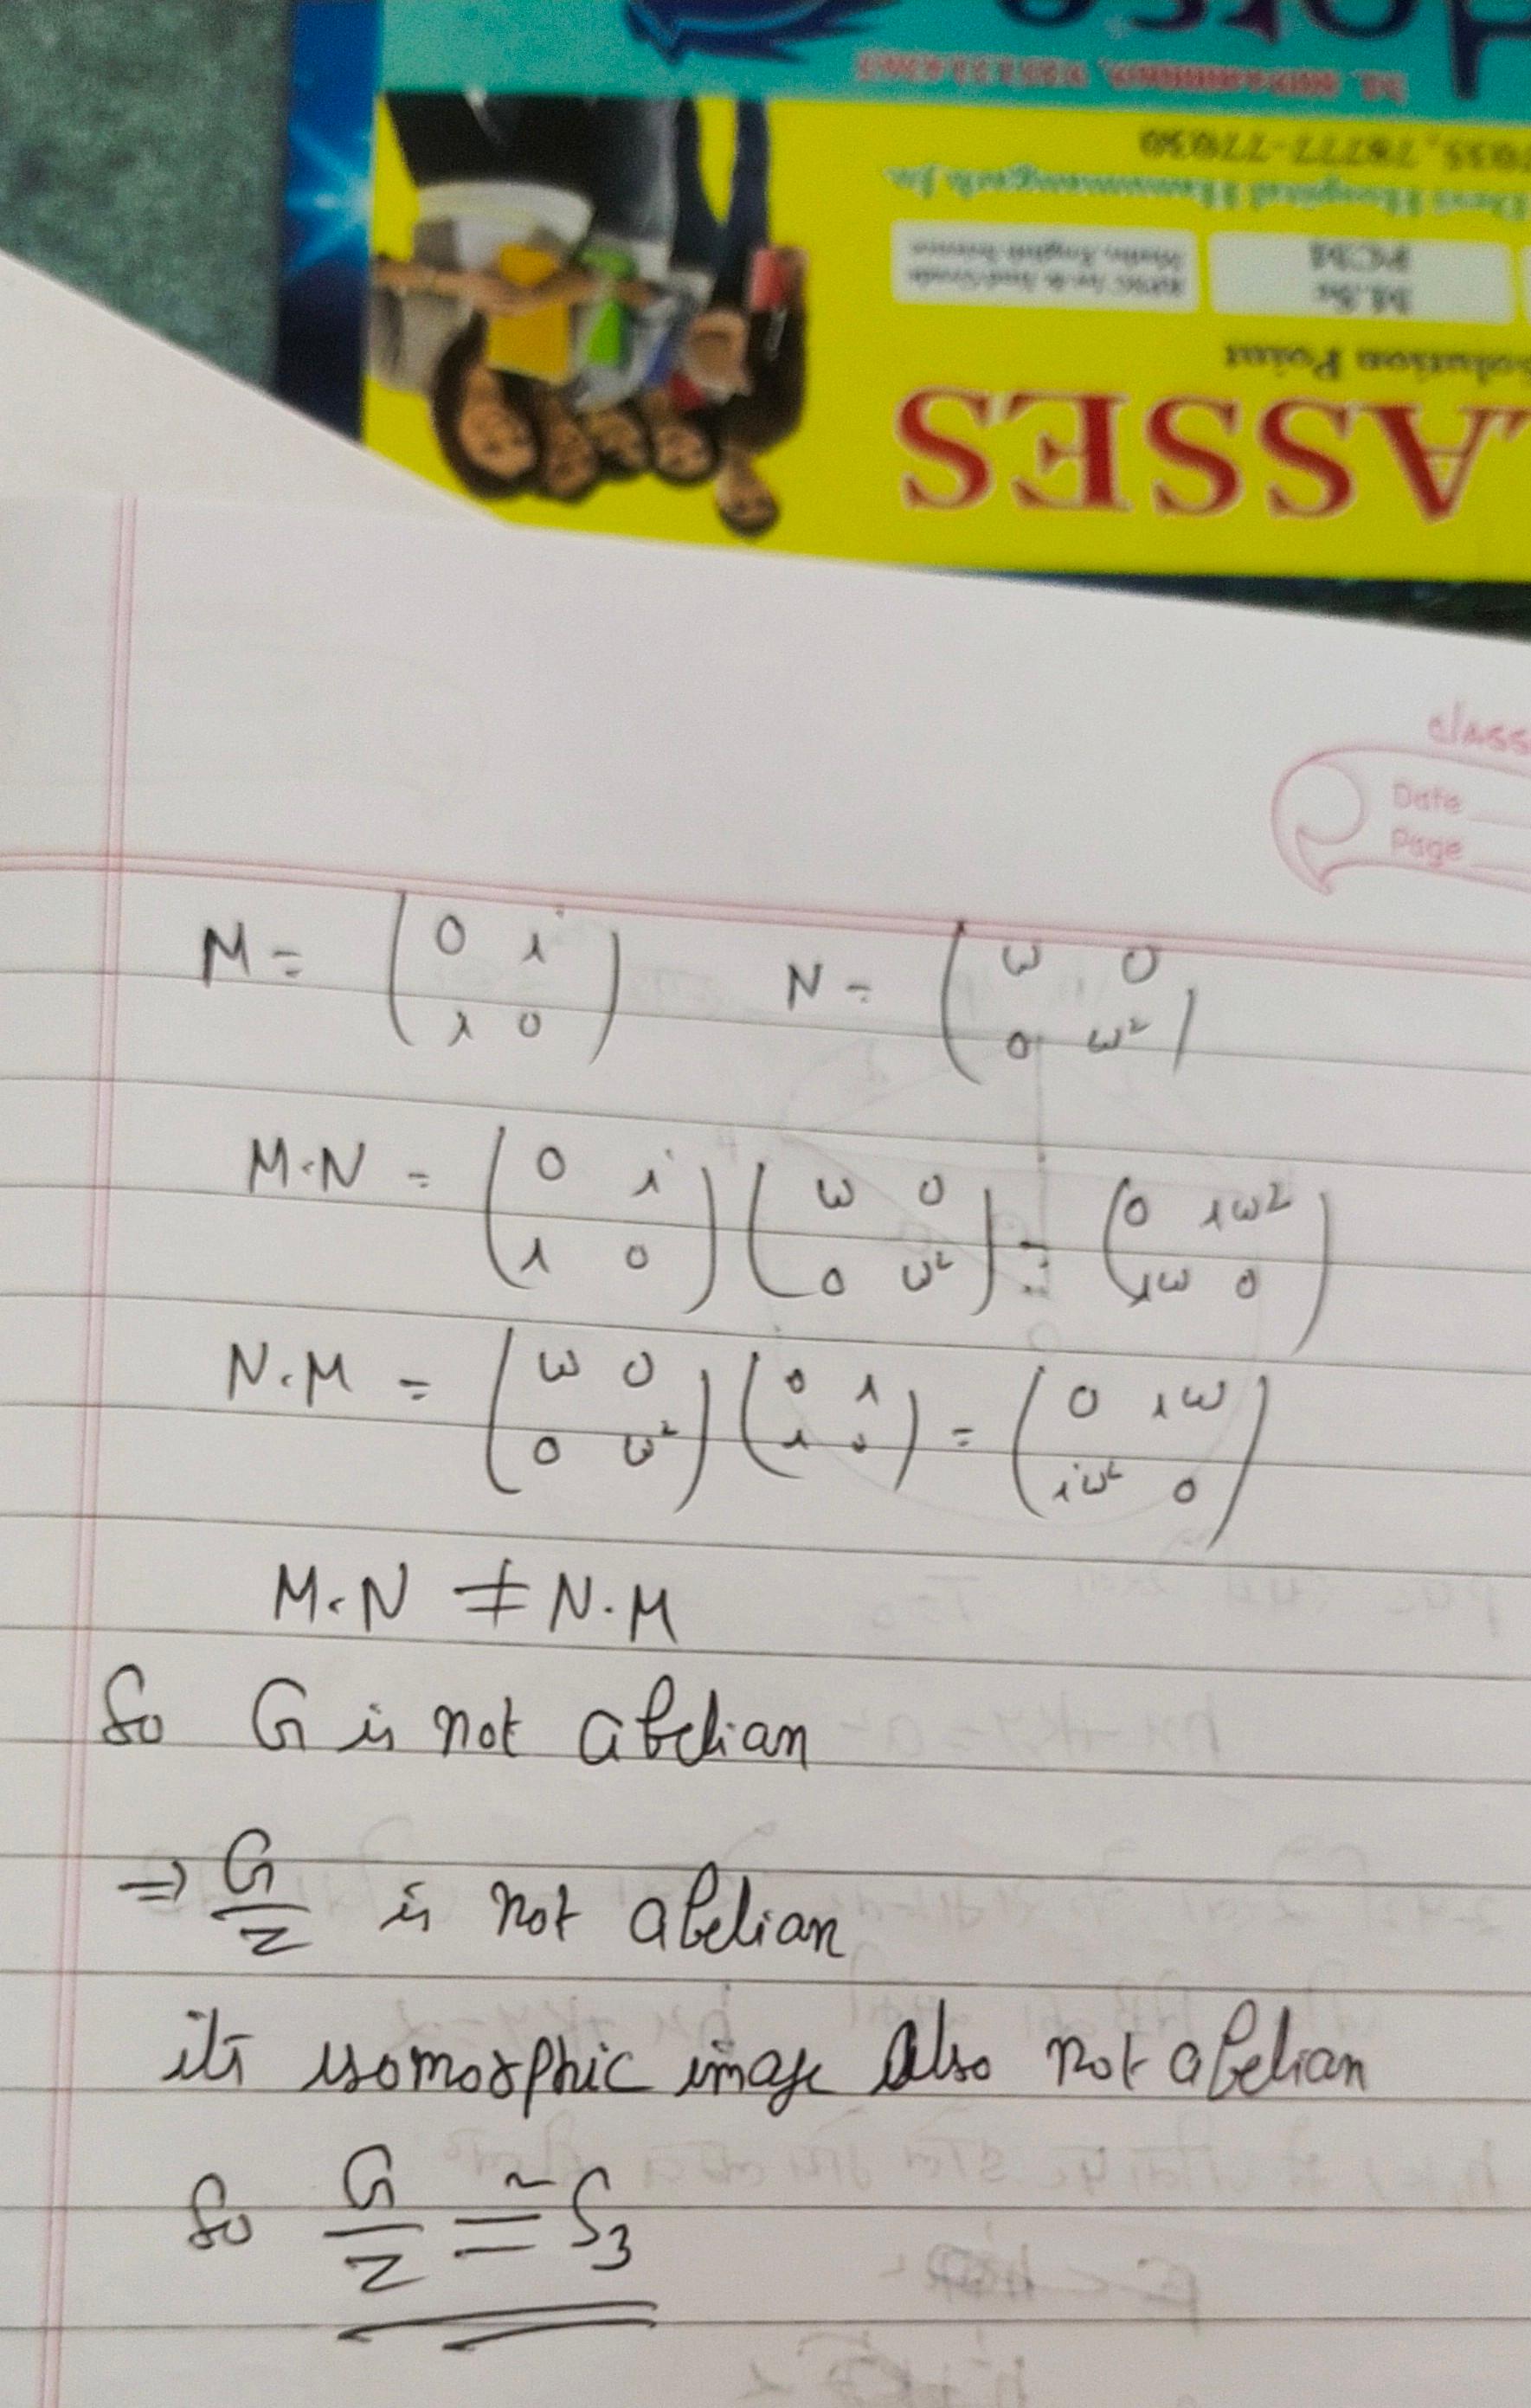 ASSES
Solution Point
M.Sc
PCM
Devi Hospital Hanumangarh Jn.
78777-77030
class
Date
Page
M = ( 0 i
i 0 )
N = ( ω 0
0 ω² )
M·N = ( 0 i
i 0 ) ( ω 0
0 ω² ) = ( 0 iω²
iω 0 )
N·M = ( ω 0
0 ω² ) ( 0 i
i 0 ) = ( 0 iω
iω² 0 )
M·N ≠ N·M
So G is not abelian
⇒ G/Z is not abelian
its isomorphic image also not abelian
So G/Z ≅ S₃